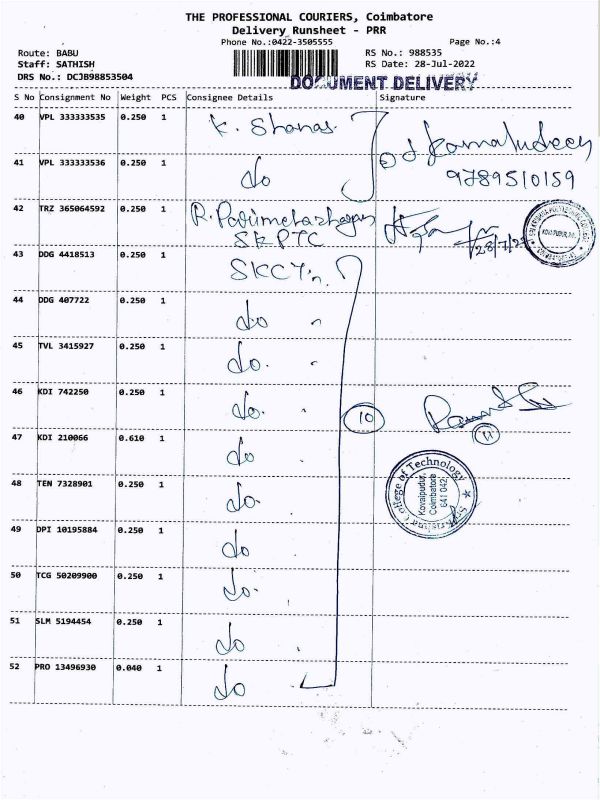 THE PROFESSIONAL COURIERS, Coimbatore
Delivery Runsheet - PRR
Phone No.:0422-3505555 Page No.:4
Route: BABU RS No.: 988535
Staff: SATHISH RS Date: 28-Jul-2022
DRS No.: DCJB98853504
DOCUMENT DELIVERY
S No Consignment No Weight PCS Consignee Details Signature
40 VPL 333333535 0.250 1 K. Shanas
41 VPL 333333536 0.250 1 do
9789510159
42 TRZ 365064592 0.250 1 R.
SKPTC 28/7/22
43 DDG 4418513 0.250 1 SKCT
44 DDG 407722 0.250 1 do "
45 TVL 3415927 0.250 1 do. "
46 KDI 742250 0.250 1 do. 10
11
47 KDI 210066 0.610 1 do
48 TEN 7328901 0.250 1 do.
Sri Krishna College of Technology
Kovaipudur,
Coimbatore
641 042
49 DPI 10195884 0.250 1 do
50 TCG 50209900 0.250 1 do.
51 SLM 5194454 0.250 1 do
52 PRO 13496930 0.040 1 do